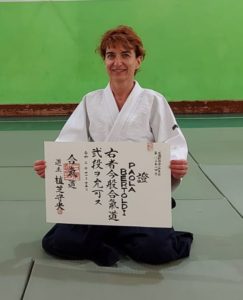 證
PAOLA
BERTOLDI
右者今般合氣道
弐段ヲ允可ス
合氣道
道主 植芝守央